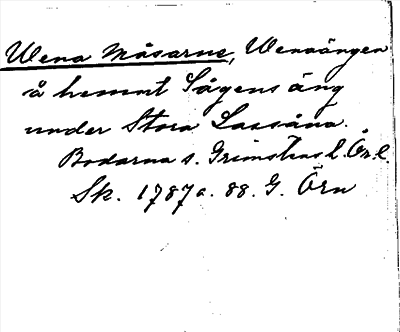 Wena Måsarne, Wenaängen
å hemmt Sågens äng
under Stora Lassåna.
Bodarna s. Grimstens h. Ör. l.
Sk. 1787 a. 88. G. Örn